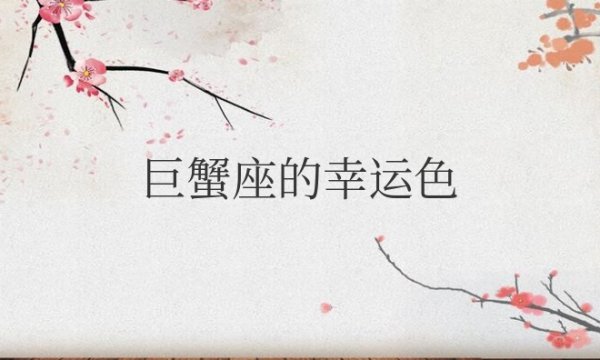 巨蟹座的幸运色